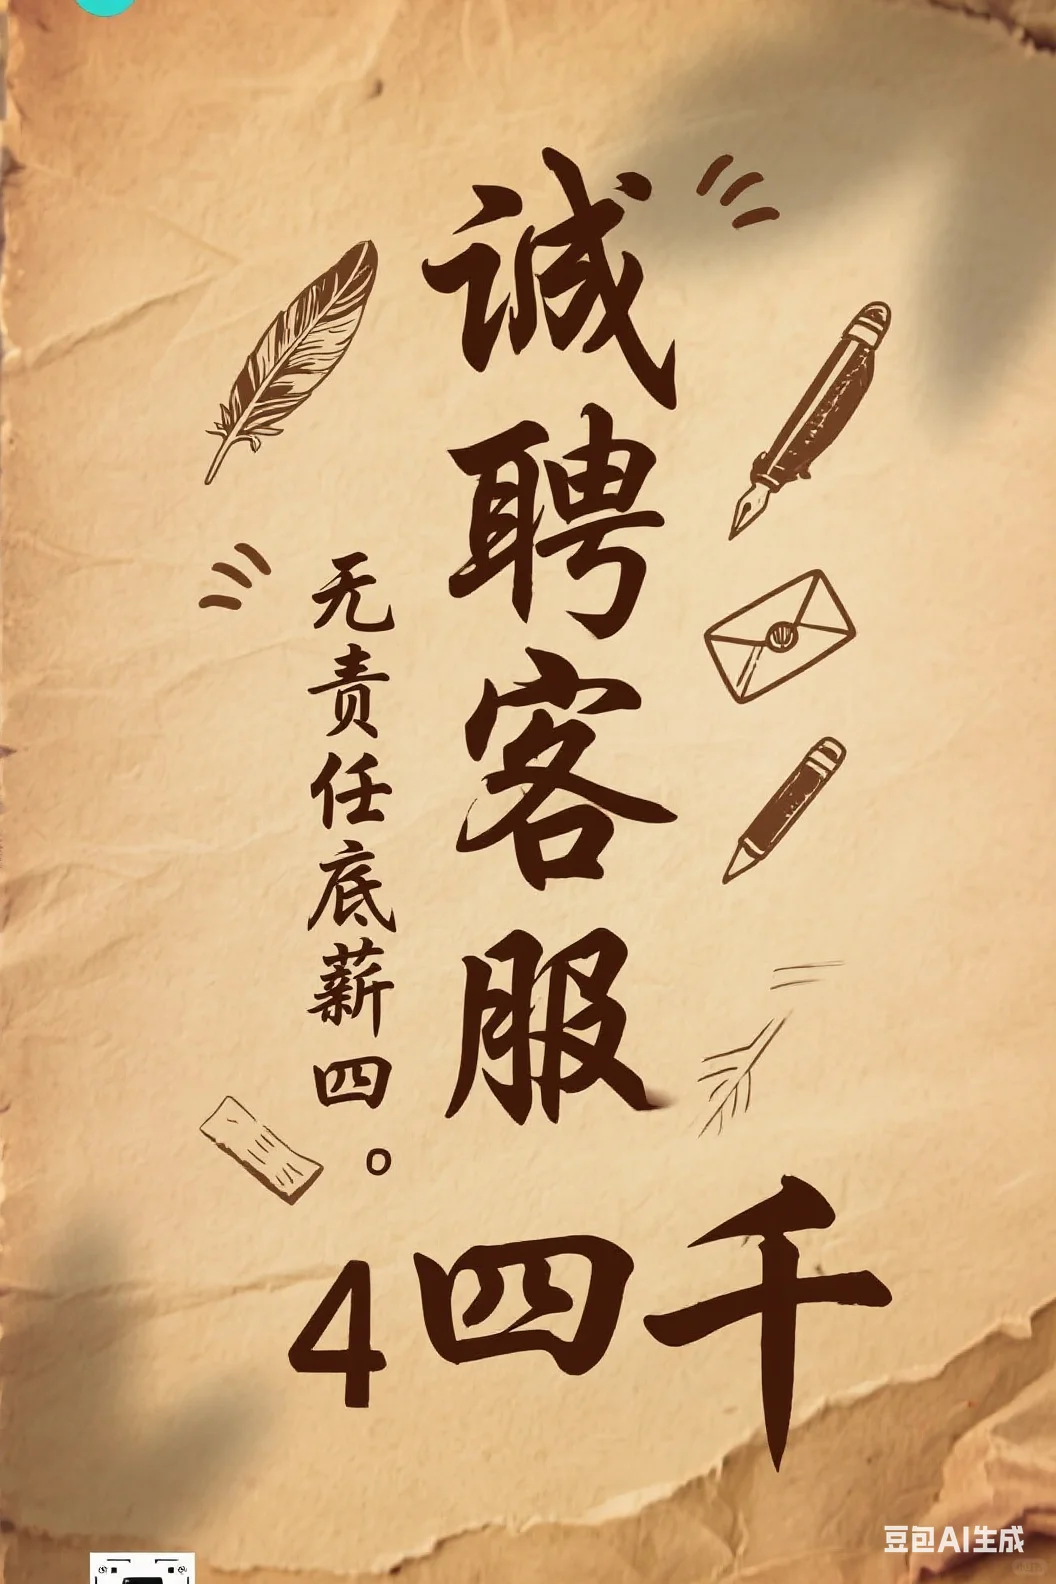 诚聘客服
无责任底薪四。
4四千
豆包AI生成